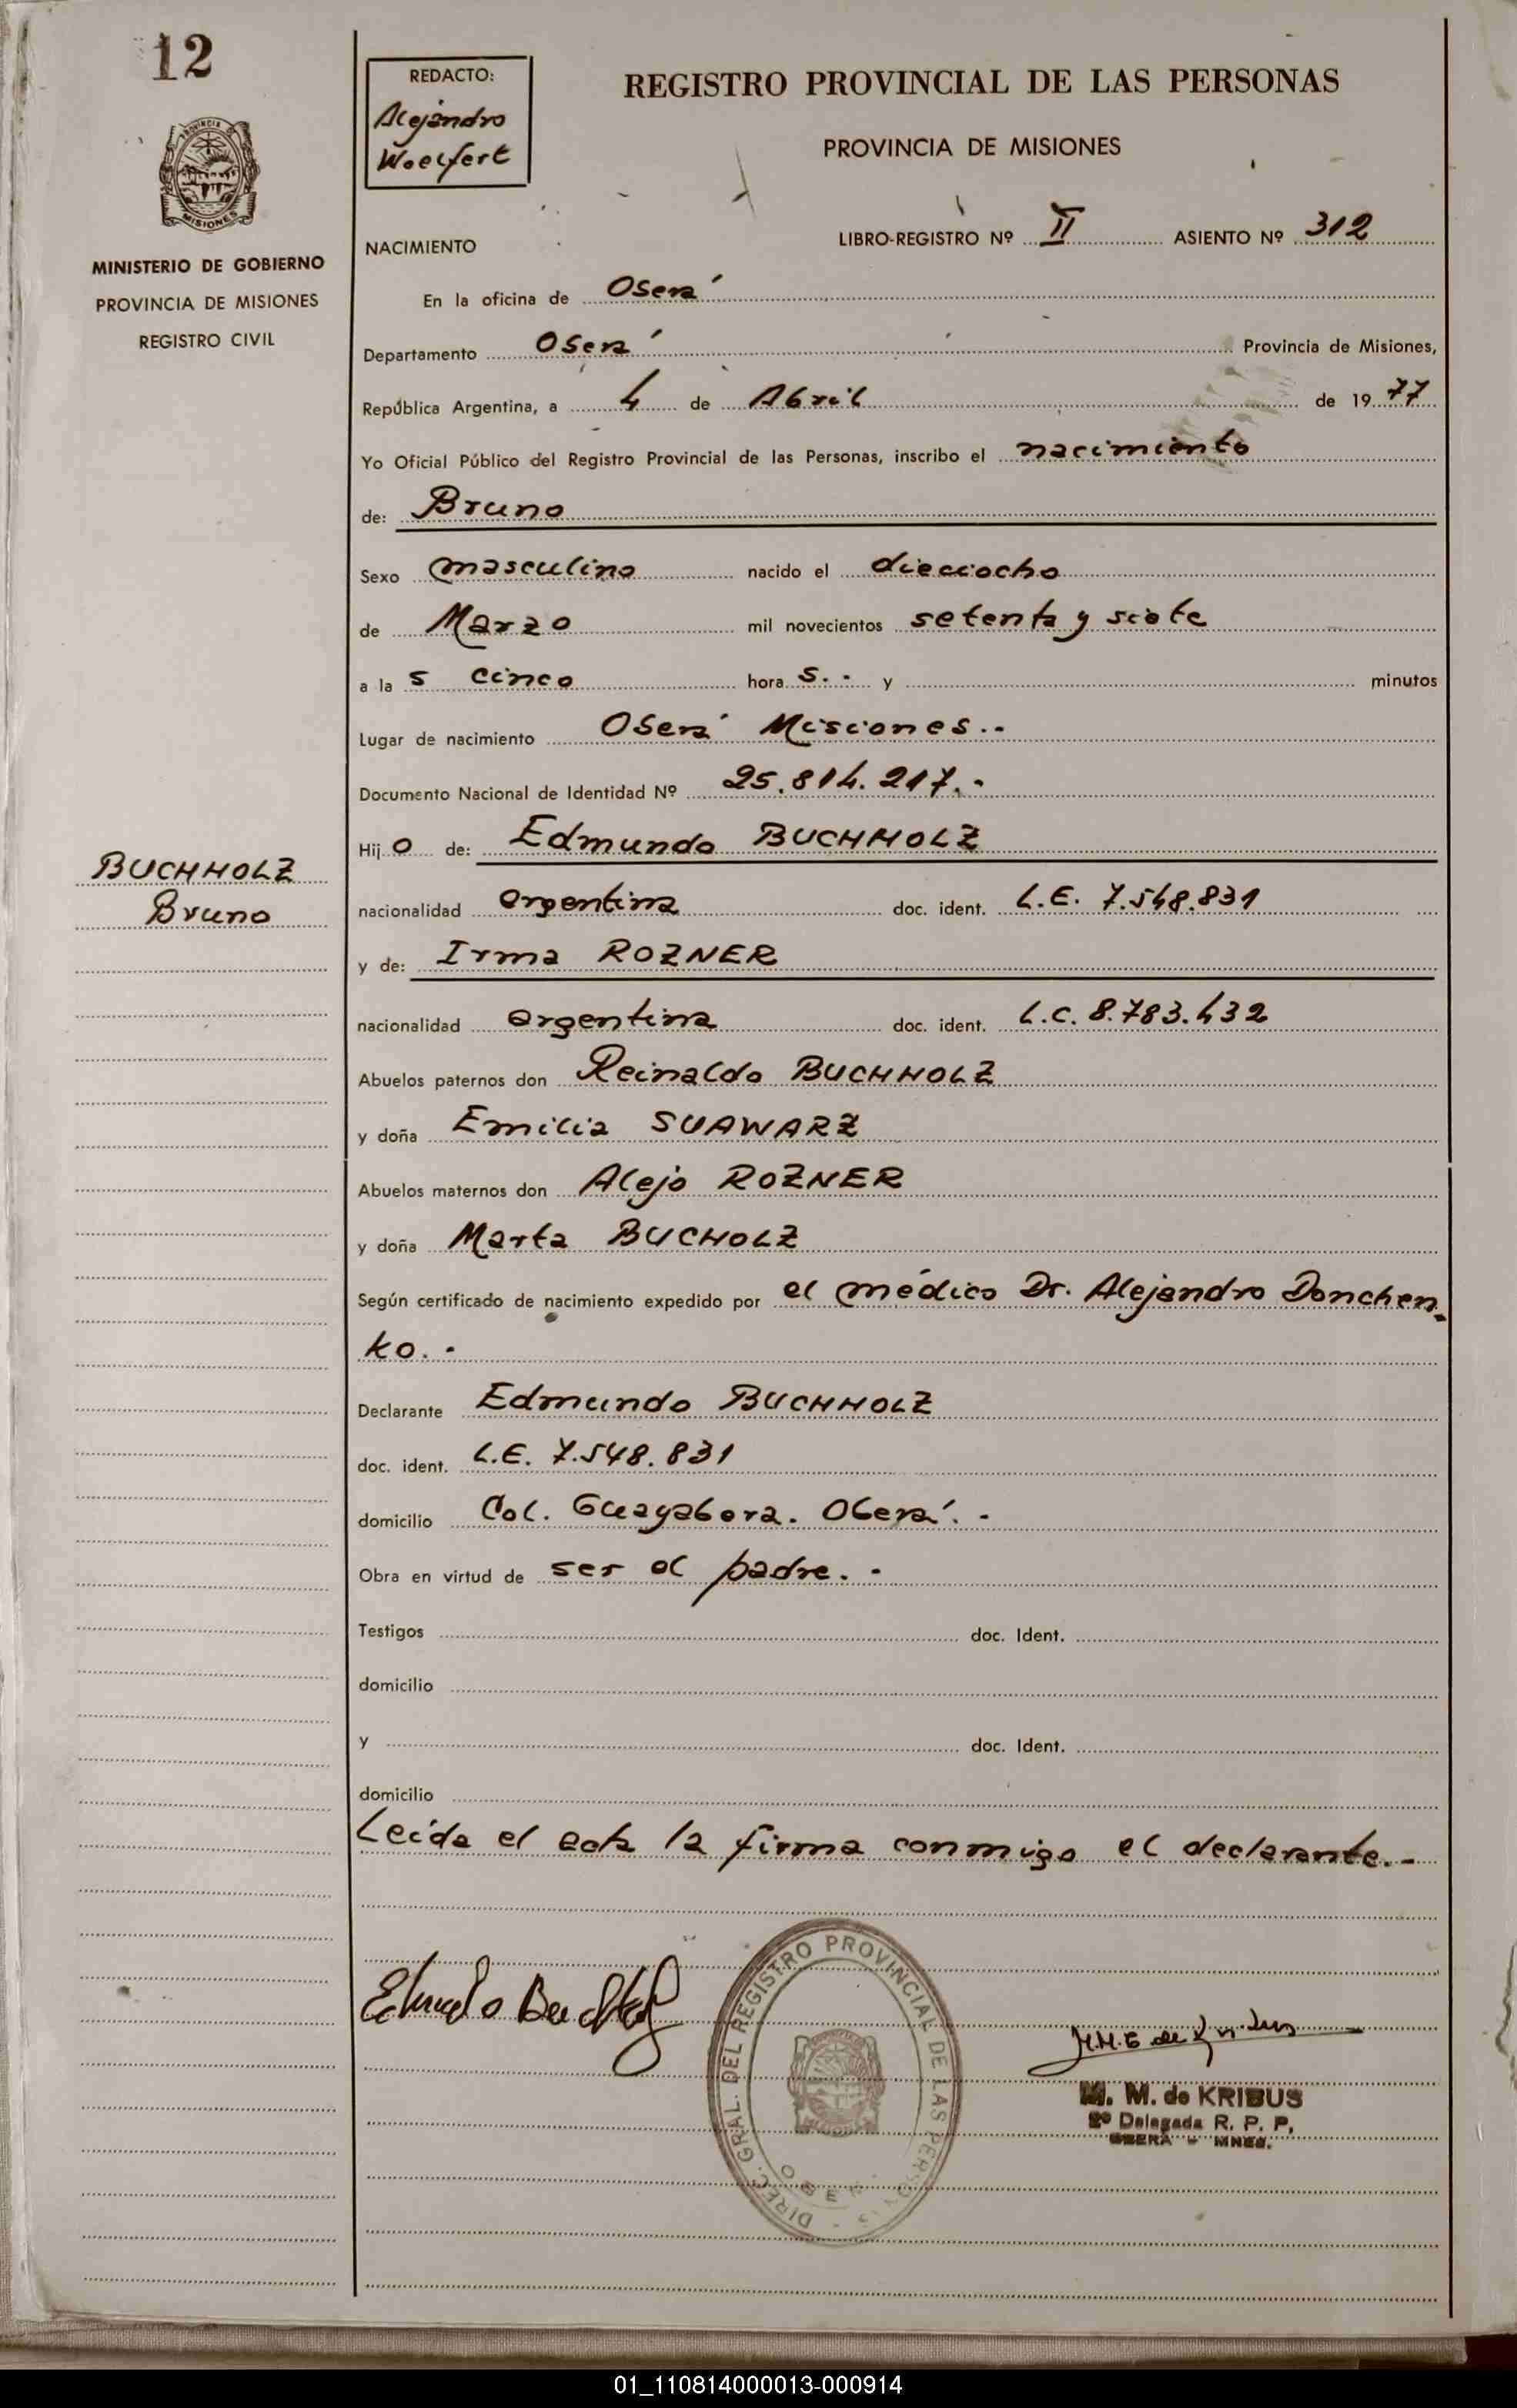 12
REDACTO:
Alejandro
Woelfert
REGISTRO PROVINCIAL DE LAS PERSONAS
PROVINCIA DE MISIONES
PROVINCIA DE
MISIONES
MINISTERIO DE GOBIERNO
PROVINCIA DE MISIONES
REGISTRO CIVIL
NACIMIENTO
LIBRO-REGISTRO Nº II ASIENTO Nº 312
En la oficina de Oberá
Departamento Oberá Provincia de Misiones,
República Argentina, a 4 de Abril de 1977
Yo Oficial Público del Registro Provincial de las Personas, inscribo el nacimiento
de: Bruno
Sexo masculino nacido el dieciocho
de Marzo mil novecientos setenta y siete
a la s cinco hora s.- y minutos
Lugar de nacimiento Oberá Misiones.-
Documento Nacional de Identidad Nº 25.814.217.-
Hijo de: Edmundo BUCHHOLZ
BUCHHOLZ
Bruno
nacionalidad argentina doc. ident. L.E. 7.548.831
y de: Irma ROZNER
nacionalidad argentina doc. ident. L.C. 8.783.432
Abuelos paternos don Reinaldo BUCHHOLZ
y doña Emilia SUAWARZ
Abuelos maternos don Alejo ROZNER
y doña Marta BUCHOLZ
Según certificado de nacimiento expedido por el médico Dr. Alejandro Donchen-
ko.-
Declarante Edmundo BUCHHOLZ
doc. ident. L.E. 7.548.831
domicilio Col. Guayabera. Oberá.-
Obra en virtud de ser el padre.-
Testigos doc. Ident.
domicilio
y doc. Ident.
domicilio
Leída el acta la firma conmigo el declarante.-
DIREC. GRAL. DEL REGISTRO PROVINCIAL DE LAS PERSONAS
M. M. de KRIBUS
2º Delegada R. P. P.
OBERÁ - MNES.
01_110814000013-000914